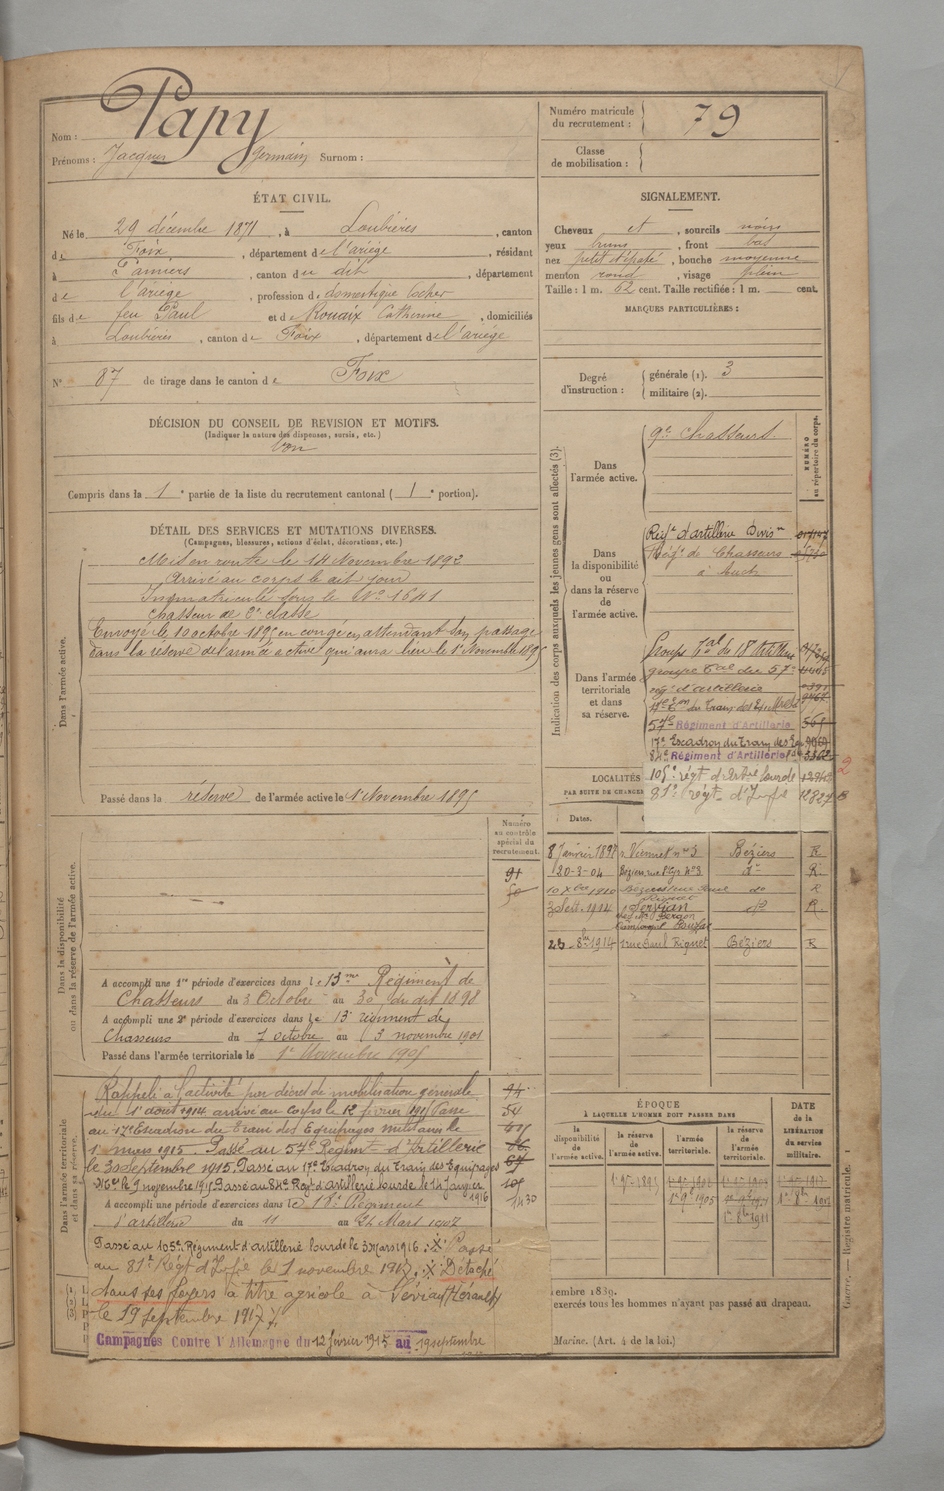 Nom : Papy
Prénoms : Jacques Germain Surnom :
Numéro matricule du recrutement : 79
Classe de mobilisation :
ÉTAT CIVIL.
Né le 29 décembre 1871, à Loubières, canton
de Foix, département de l'ariège, résidant
à Pamiers, canton du dit, département
de l'ariège, profession de domestique cocher
fils de feu Paul et de Rouaix Catherine, domiciliés
à Loubières, canton de Foix, département de l'ariège
N° 87 de tirage dans le canton de Foix
SIGNALEMENT.
Cheveux et, sourcils noirs
yeux bruns, front bas
nez petit épaté, bouche moyenne
menton rond, visage plein
Taille : 1 m. 62 cent. Taille rectifiée : 1 m. cent.
MARQUES PARTICULIÈRES :
Degré d'instruction : générale (1). 3
militaire (2).
DÉCISION DU CONSEIL DE REVISION ET MOTIFS.
(Indiquer la nature des dispenses, sursis, etc.)
bon
Compris dans la 1e partie de la liste du recrutement cantonal (1e portion).
DÉTAIL DES SERVICES ET MUTATIONS DIVERSES.
(Campagnes, blessures, actions d'éclat, décorations, etc.)
Dans l'armée active.
Mis en route le 14 Novembre 1892
Arrivé au corps le dit jour
Immatriculé sous le N° 1641
chasseur de 2e classe
Envoyé le 10 octobre 1895 en congé en attendant son passage
dans la réserve de l'armée active qui aura lieu le 1er Novembre 1895
Passé dans la réserve de l'armée active le 1er Novembre 1895
Indication des corps auxquels les jeunes gens sont affectés (3).
NUMÉRO au répertoire du corps.
Dans l'armée active.
9e Chasseurs.
Dans la disponibilité ou dans la réserve de l'armée active.
Régt d'artillerie Divisre
Régt de Chasseurs
à Auch
Dans l'armée territoriale et dans sa réserve.
Groupe tal du 18e d'artillerie
groupe tal du 57e
régt d'artillerie
17e Eon du Train des Eq. Mres
57e Régiment d'Artillerie
17e Escadron du Train des Eq.
84e Régiment d'Artillerie
105e régt d'Artie lourde
81e régt d'Infie 12827
2
LOCALITÉS
PAR SUITE DE CHANGE
Dates.
8 Janvier 1897 r. Viennet n° 3 Béziers R
20-3-04 Béziers, n° 3 do R
10 Xbre 1910 do R
3 Sept. 1914 Servian do R.
23 - 8bre 1914 rue Paul Riquet Béziers R
Dans la disponibilité ou dans la réserve de l'armée active.
Numéro au contrôle spécial du recrutement.
91
50
A accompli une 1re période d'exercices dans le 13me Régiment de
Chasseurs du 3 Octobre au 30 du dit 1898
A accompli une 2e période d'exercices dans le 13e régiment de
Chasseurs du 7 octobre au 3 novembre 1901
Passé dans l'armée territoriale le 1er Novembre 1905
Dans l'armée territoriale et dans sa réserve.
Rappelé à l'activité par décret de mobilisation générale
du 1er août 1914 arrivé au corps le 12 février 1915 Passé
au 17e Escadron du Train des Equipages militaires le
1er mars 1915. Passé au 57e Régimt d'Artillerie
le 30 Septembre 1915. Passé au 17e Escadron du Train des Equipages
Mres le 9 novembre 1915 Passé au 84e Régt d'artillerie lourde le 14 Janvier 1916
A accompli une période d'exercices dans le 18e Régiment
d'artillerie du 11 au 24 Mars 1907
Passé au 105e Régiment d'artillerie lourde le 3 Mars 1916. Passé
au 81e Régt d'Infie le 1 novembre 1917. Détaché
dans ses foyers à titre agricole à Servian (Hérault)
le 19 septembre 1917
Campagnes Contre l'Allemagne du 12 février 1915 au 19 septembre
94
54
1430
ÉPOQUE
À LAQUELLE L'HOMME DOIT PASSER DANS
la disponibilité de l'armée active.
la réserve de l'armée active.
l'armée territoriale.
la réserve de l'armée territoriale.
DATE de la LIBÉRATION du service militaire.
1er 9bre 1895
1er 9bre 1905
1er 8bre 1911
embre 1839.
exercés tous les hommes n'ayant pas passé au drapeau.
Marine. (Art. 4 de la loi.)
Guerre. — Registre matricule. — 1